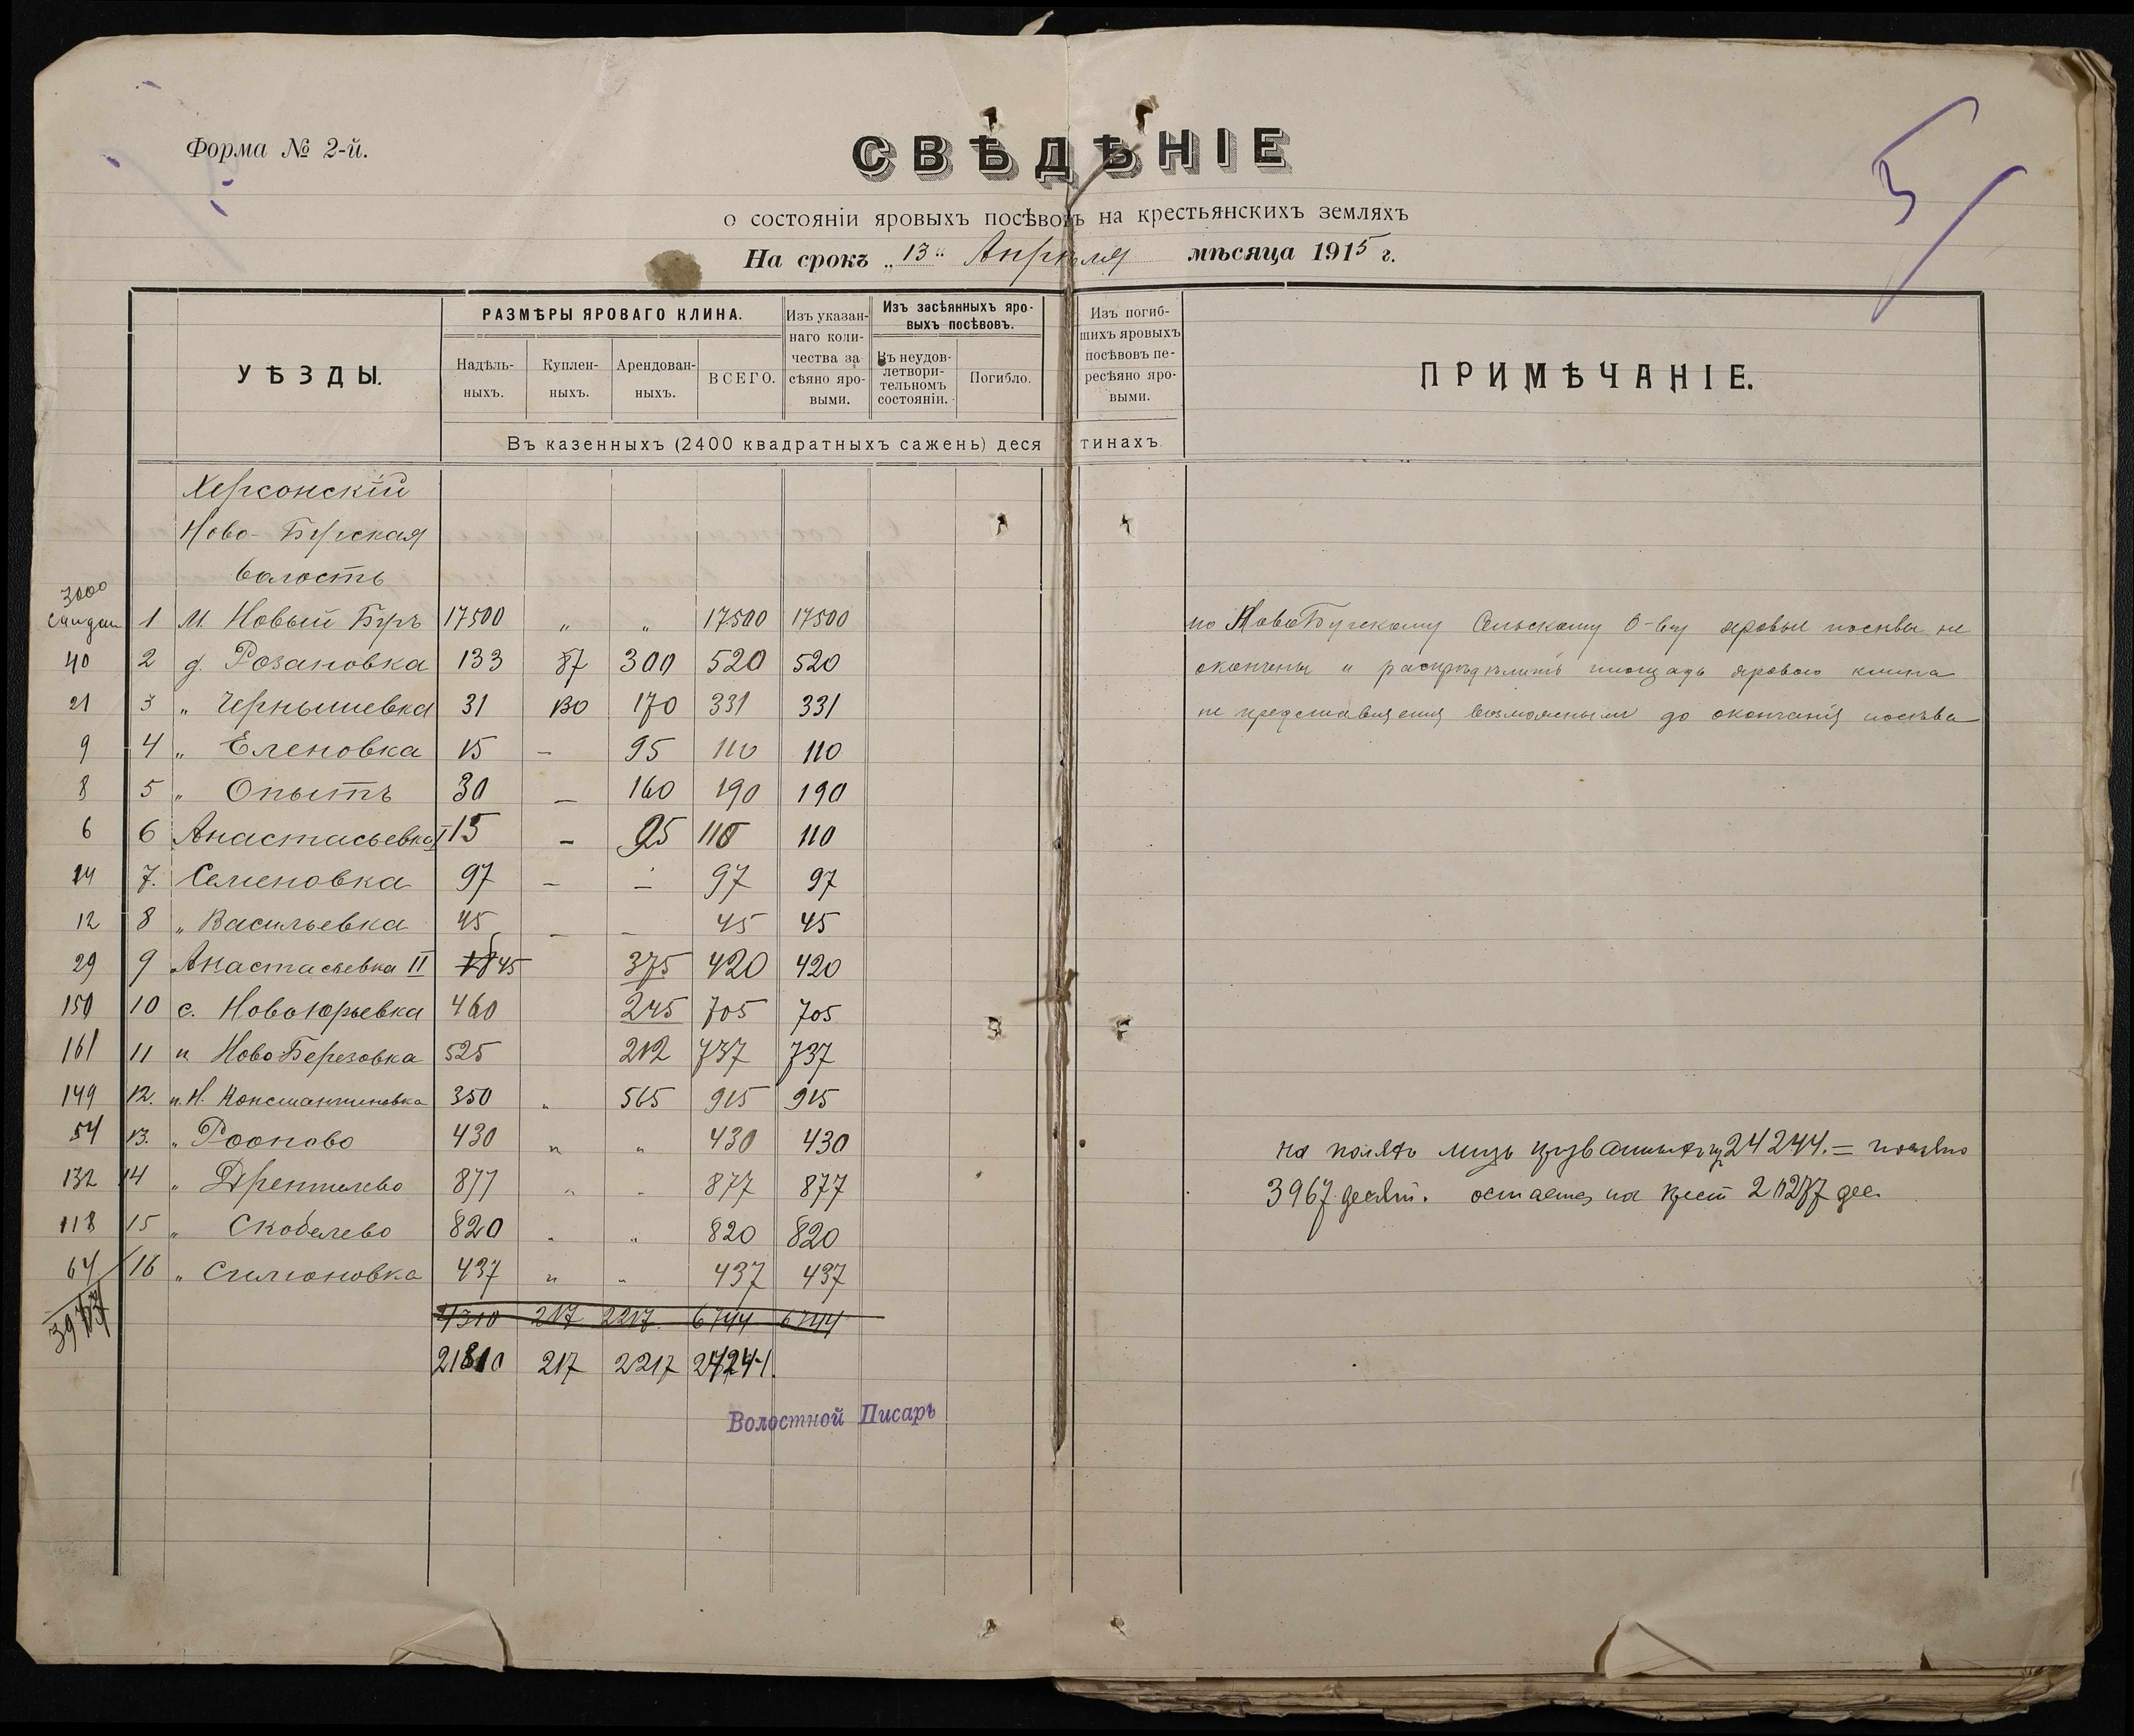 Форма № 2-й.
СВѢДѢНІЕ
о состоянiи яровыхъ посѣвовъ на крестьянскихъ земляхъ
На срокъ „13“ Апрѣля мѣсяца 1915 г.
5
УѢЗДЫ.
РАЗМѢРЫ ЯРОВАГО КЛИНА.
Надѣль-
ныхъ.
Куплен-
ныхъ.
Арендован-
ныхъ.
ВСЕГО.
Изъ указан-
наго коли-
чества за
сѣяно яро-
выми.
Изъ засѣянныхъ яро-
выхъ посѣвовъ.
Въ неудов-
летвори-
тельномъ
состояніи.
Погибло.
Изъ погиб-
шихъ яровыхъ
посѣвовъ пе-
ресѣяно яро-
выми.
ПРИМѢЧАНІЕ.
Въ казенныхъ (2400 квадратныхъ сажень) деся тинахъ
Херсонскій
Ново-Бугская
волость
3000
1 М. Новый Бугъ 17500 „ „ 17500 17500
40 2 д. Розановка 133 87 300 520 520
21 3 „ Чернышевка 31 130 170 331 331
9 4 „ Еленовка 15 – 95 110 110
8 5 „ Опытъ 30 – 160 190 190
6 6 Анастасьевка I 15 – 95 110 110
14 7. Семеновка 97 – – 97 97
12 8 „ Васильевка 45 – – 45 45
29 9 „ Анастасьевка II 45 375 420 420
150 10 с. Новоюрьевка 460 245 705 705
161 11 „ НовоБерезовка 525 212 737 737
149 12. „ Н. Константиновка 350 „ 565 915 915
54 13. „ Рооново 430 „ „ 430 430
132 14 „ Дрентелево 877 „ „ 877 877
118 15 „ Скобелево 820 „ „ 820 820
64 16 „ Симоновка 437 „ „ 437 437
4310 217 2217 6744 6744
21810 217 2217 24244
Волостной Писарь
по НовоБугскому Сельскому О-ву яровые посѣвы не
окончены и распредѣлить площадь ярового клина
не представляется возможнымъ до окончанія посѣва
на поляхъ 24244. = посѣяно
3967 десят. остается на 20277 дес.